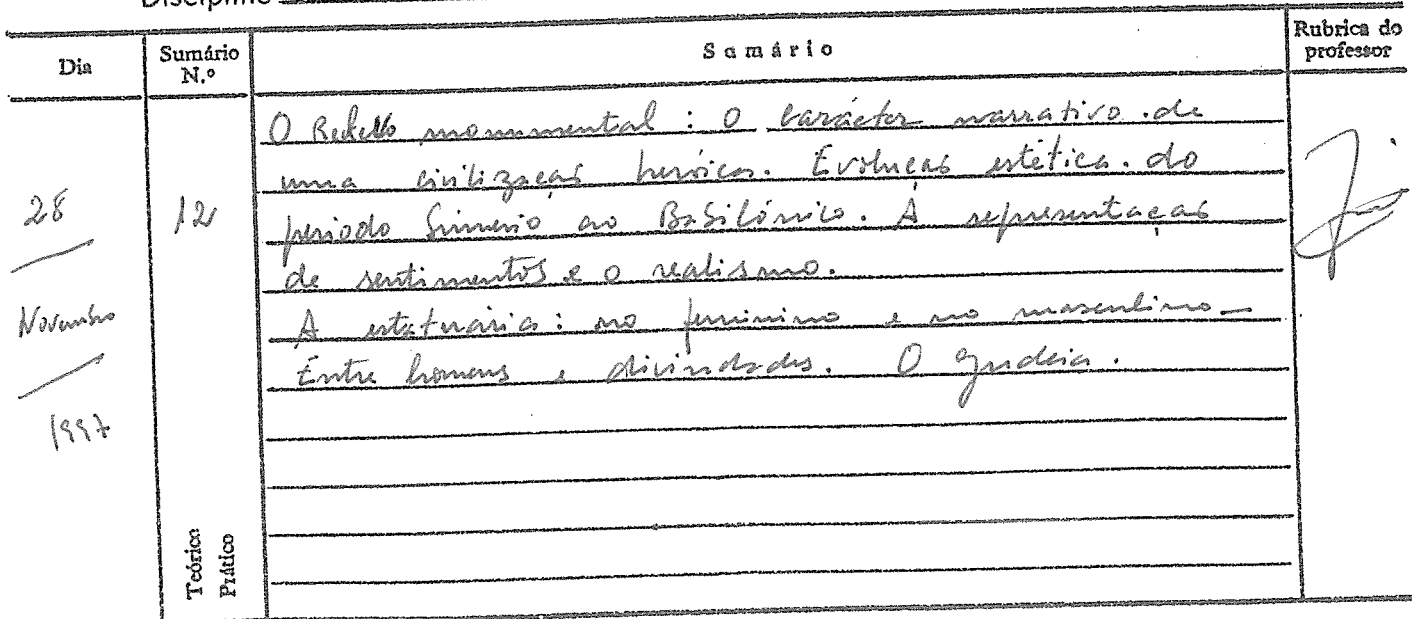 Disciplina
Dia
Sumário N.º
Sumário
Rubrica do professor
28
Novembro
1997
12
O Relevo monumental : O carácter narrativo de
uma civilização heróica. Evolução estética do
período Sumério ao Babilónico. A representação
de sentimentos e o realismo.
A estatuária : no feminino e no masculino_
Entre homens e divindades. O Gudeia.
Teórico
Prático